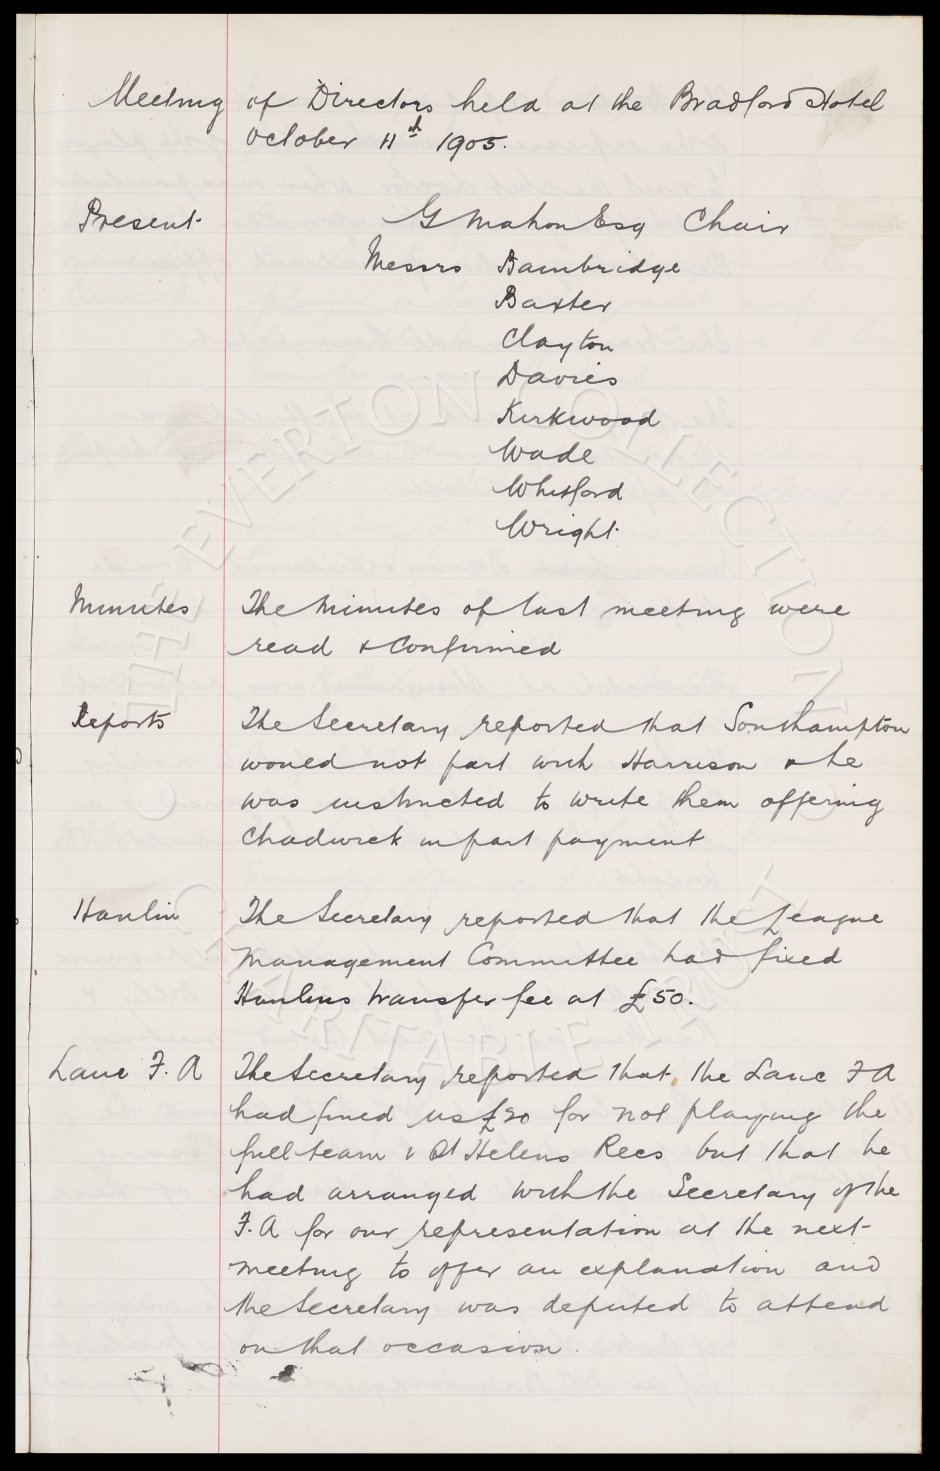 Meeting of Directors held at the Bradford Hotel
October 11th 1905.
Present G Mahon Esq Chair
Messrs Bainbridge
Baxter
Clayton
Davies
Kirkwood
Wade
Whitford
Wright
Minutes The Minutes of last meeting were
read & Confirmed
Reports The Secretary reported that Southampton
would not part with Harrison & he
was instructed to write them offering
Chadwick in part payment
Hanlin The Secretary reported that the League
Management Committee had fixed
Hanlins transfer fee at £50.
Lanc F. A The Secretary reported that the Lanc F A
had fined us £20 for not playing the
full team v St Helens Recs but that he
had arranged with the Secretary of the
F. A for our representation at the next
meeting to offer an explanation and
the Secretary was deputed to attend
on that occasion.
THE EVERTON COLLECTION
CHARITABLE TRUST